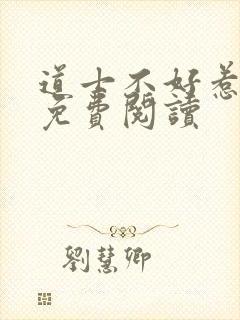 道士不好惹
免費閱讀
劉慧卿